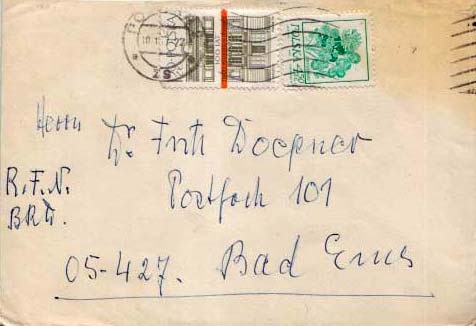 POLSKA
Herrn
Dr. Fritz Doepner
R.F.N.
Postfach 101
BRD.
05-427. Bad Ems